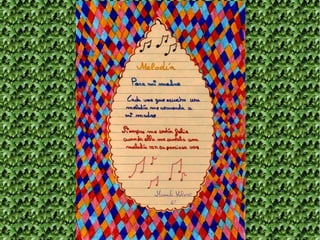 Melodía
Para mi madre
Cada vez que escucho una
melodía me recuerda a
mi madre.
Siempre me sentía feliz
cuando ella me cantaba una
melodía con su preciosa voz